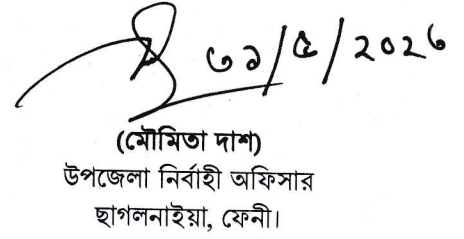 ৩১/৫/২০২৩
(মৌমিতা দাশ)
উপজেলা নির্বাহী অফিসার
ছাগলনাইয়া, ফেনী।